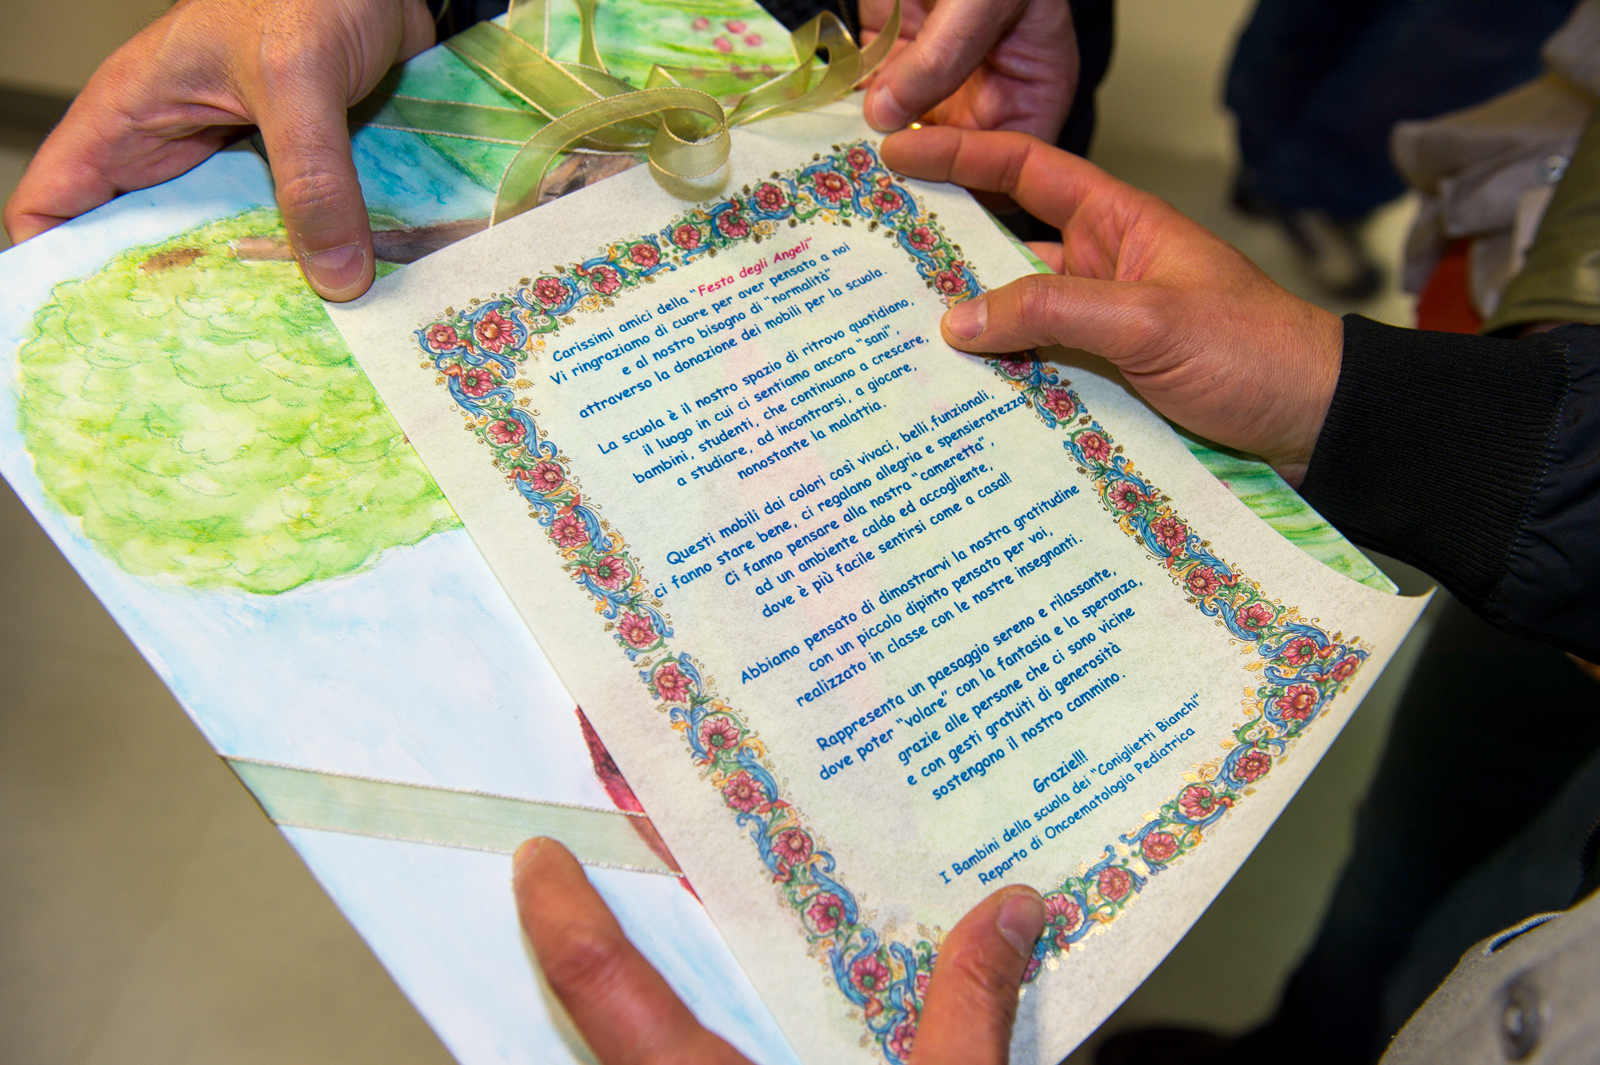 Carissimi amici della "Festa degli Angeli"
Vi ringraziamo di cuore per aver pensato a noi
e al nostro bisogno di "normalità"
attraverso la donazione dei mobili per la scuola.
La scuola è il nostro spazio di ritrovo quotidiano,
il luogo in cui ci sentiamo ancora "sani",
bambini, studenti, che continuano a crescere,
a studiare, ad incontrarsi, a giocare,
nonostante la malattia.
Questi mobili dai colori così vivaci, belli ,funzionali,
ci fanno stare bene, ci regalano allegria e spensieratezza.
Ci fanno pensare alla nostra "cameretta",
ad un ambiente caldo ed accogliente,
dove è più facile sentirsi come a casa!!
Abbiamo pensato di dimostrarvi la nostra gratitudine
con un piccolo dipinto pensato per voi,
realizzato in classe con le nostre insegnanti.
Rappresenta un paesaggio sereno e rilassante,
dove poter "volare" con la fantasia e la speranza,
grazie alle persone che ci sono vicine
e con gesti gratuiti di generosità
sostengono il nostro cammino.
Grazie!!!
I Bambini della scuola dei "Coniglietti Bianchi"
Reparto di Oncoematologia Pediatrica